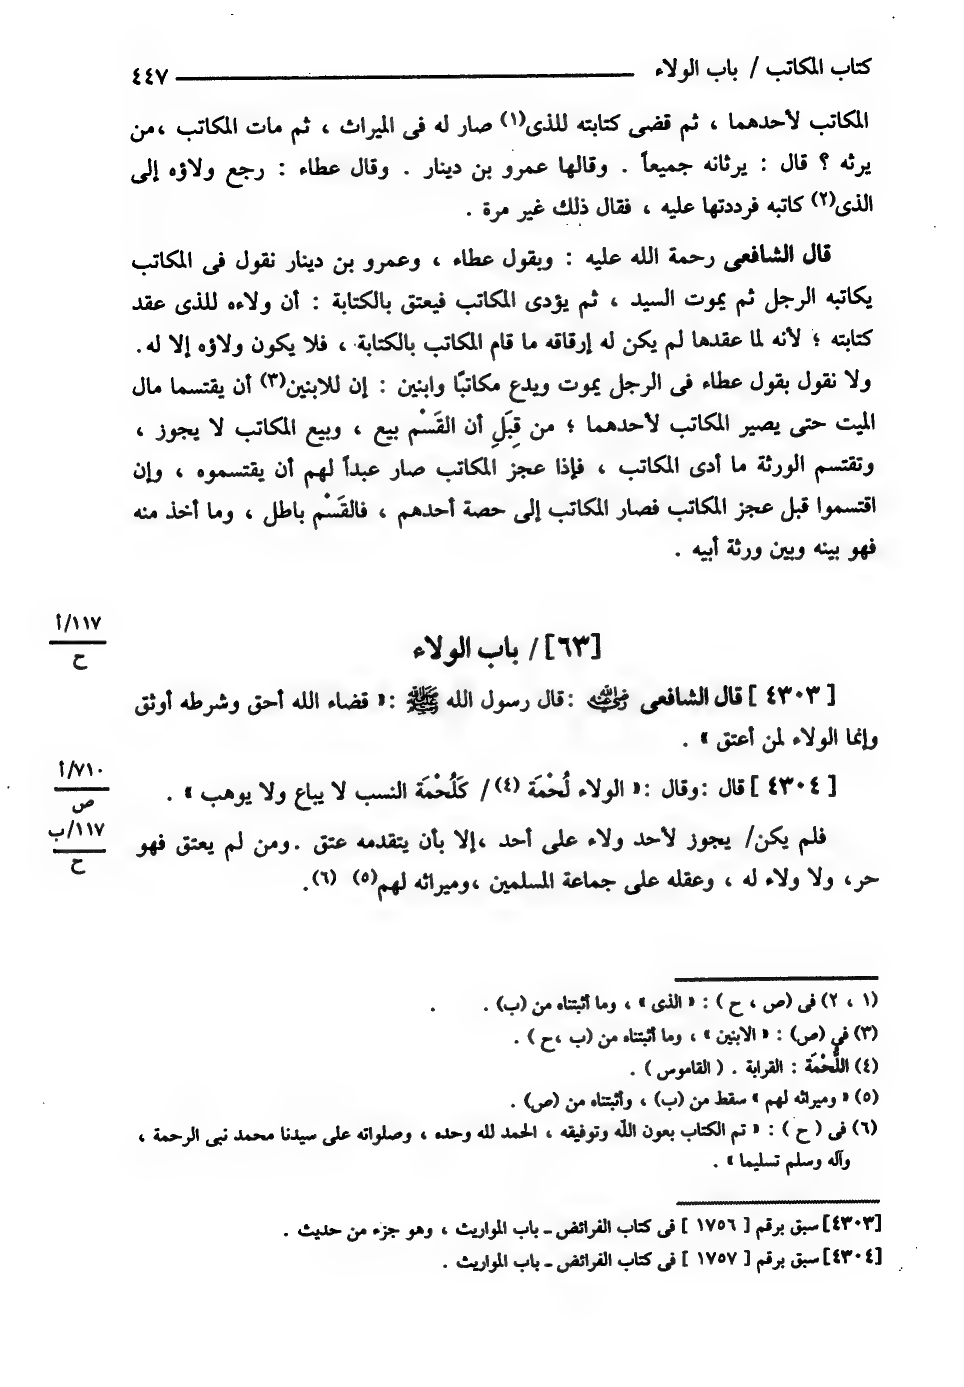 كتاب المكاتب / باب الولاء ٤٤٧
المكاتب لأحدهما ، ثم قضى كتابته للذى(١) صار له فى الميراث ، ثم مات المكاتب ،من
يرثه ؟ قال : يرثانه جميعاً . وقالها عمرو بن دينار . وقال عطاء : رجع ولاؤه إلى
الذى(٢) كاتبه فرددتها عليه ، فقال ذلك غير مرة .
قال الشافعى رحمة الله عليه : وبقول عطاء ، وعمرو بن دينار نقول فى المكاتب
يكاتبه الرجل ثم يموت السيد ، ثم يؤدى المكاتب فيعتق بالكتابة : أن ولاءه للذى عقد
كتابته ؛ لأنه لما عقدها لم يكن له إرقاقه ما قام المكاتب بالكتابة ، فلا يكون ولاؤه إلا له.
ولا نقول بقول عطاء فى الرجل يموت ويدع مكاتبًا وابنين : إن للابنين(٣) أن يقتسما مال
الميت حتى يصير المكاتب لأحدهما ؛ من قِبَلِ أن القَسْم بيع ، وبيع المكاتب لا يجوز ،
وتقتسم الورثة ما أدى المكاتب ، فإذا عجز المكاتب صار عبداً لهم أن يقتسموه ، وإن
اقتسموا قبل عجز المكاتب فصار المكاتب إلى حصة أحدهم ، فالقَسْم باطل ، وما أخذ منه
فهو بينه وبين ورثة أبيه .
١١٧/أ
ح
[٦٣] / باب الولاء
[ ٤٣٠٣ ] قال الشافعى رضي الله عنه :قال رسول الله ﷺ :« قضاء الله أحق وشرطه أوثق
وإنما الولاء لمن أعتق » .
٧١٠/أ
ص
[ ٤٣٠٤ ] قال :وقال :« الولاء لُحْمَة (٤)/ كَلُحْمَة النسب لا يباع ولا يوهب » .
١١٧/ب
ح
فلم يكن/ يجوز لأحد ولاء على أحد ،إلا بأن يتقدمه عتق .ومن لم يعتق فهو
حر، ولا ولاء له ، وعقله على جماعة المسلمين ،وميراثه لهم(٥) (٦).
(١ ، ٢) فى (ص ، ح ) : « الذى » ، وما أثبتناه من (ب) .
(٣) فى (ص) : « الابنين » ، وما أثبتناه من (ب ،ح ) .
(٤) اللُّحْمَة : القرابة . ( القاموس ) .
(٥) « وميراثه لهم » سقط من (ب) ، وأثبتناه من (ص) .
(٦) فى ( ح ) : « تم الكتاب بعون اللّه وتوفيقه ، الحمد لله وحده ، وصلواته على سيدنا محمد نبى الرحمة ،
وآله وسلم تسليما » .
[٤٣٠٣] سبق برقم [ ١٧٥٦ ] فى كتاب الفرائض ـ باب المواريث ، وهو جزء من حديث .
[٤٣٠٤] سبق برقم [ ١٧٥٧ ] فى كتاب الفرائض ـ باب المواريث .